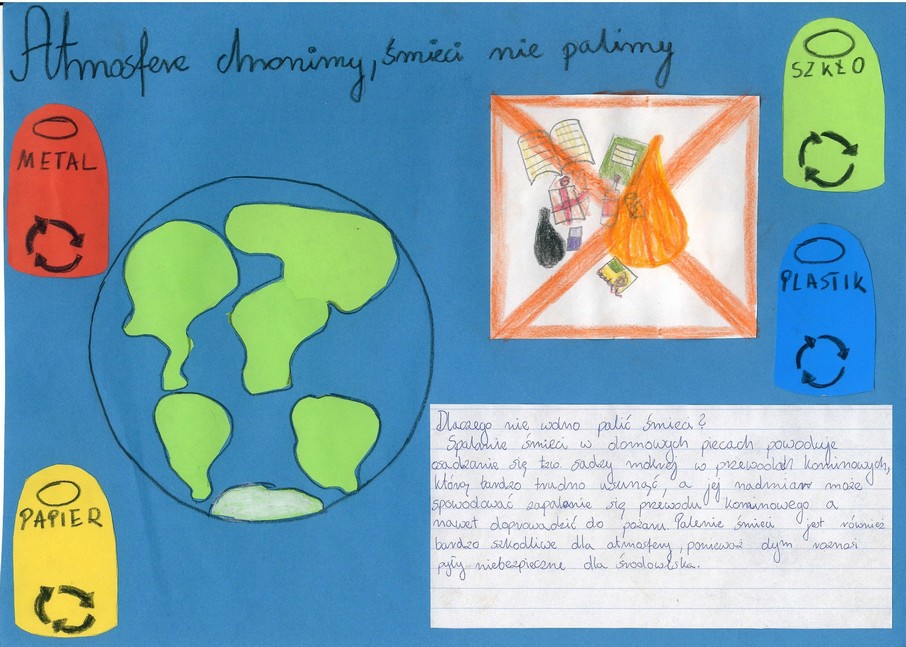 Atmosferę chronimy, śmieci nie palimy
SZKŁO
METAL
PLASTIK
PAPIER
Dlaczego nie wolno palić śmieci?
Spalanie śmieci w domowych piecach powoduje
osadzanie się tzw. sadzy mokrej w przewodach kominowych,
którą bardzo trudno usunąć, a jej nadmiar może
spowodować zapalanie się przewodu kominowego a
nawet doprowadzić do pożaru. Palenie śmieci jest również
bardzo szkodliwe dla atmosfery, ponieważ dym roznosi
pyły niebezpieczne dla środowiska.